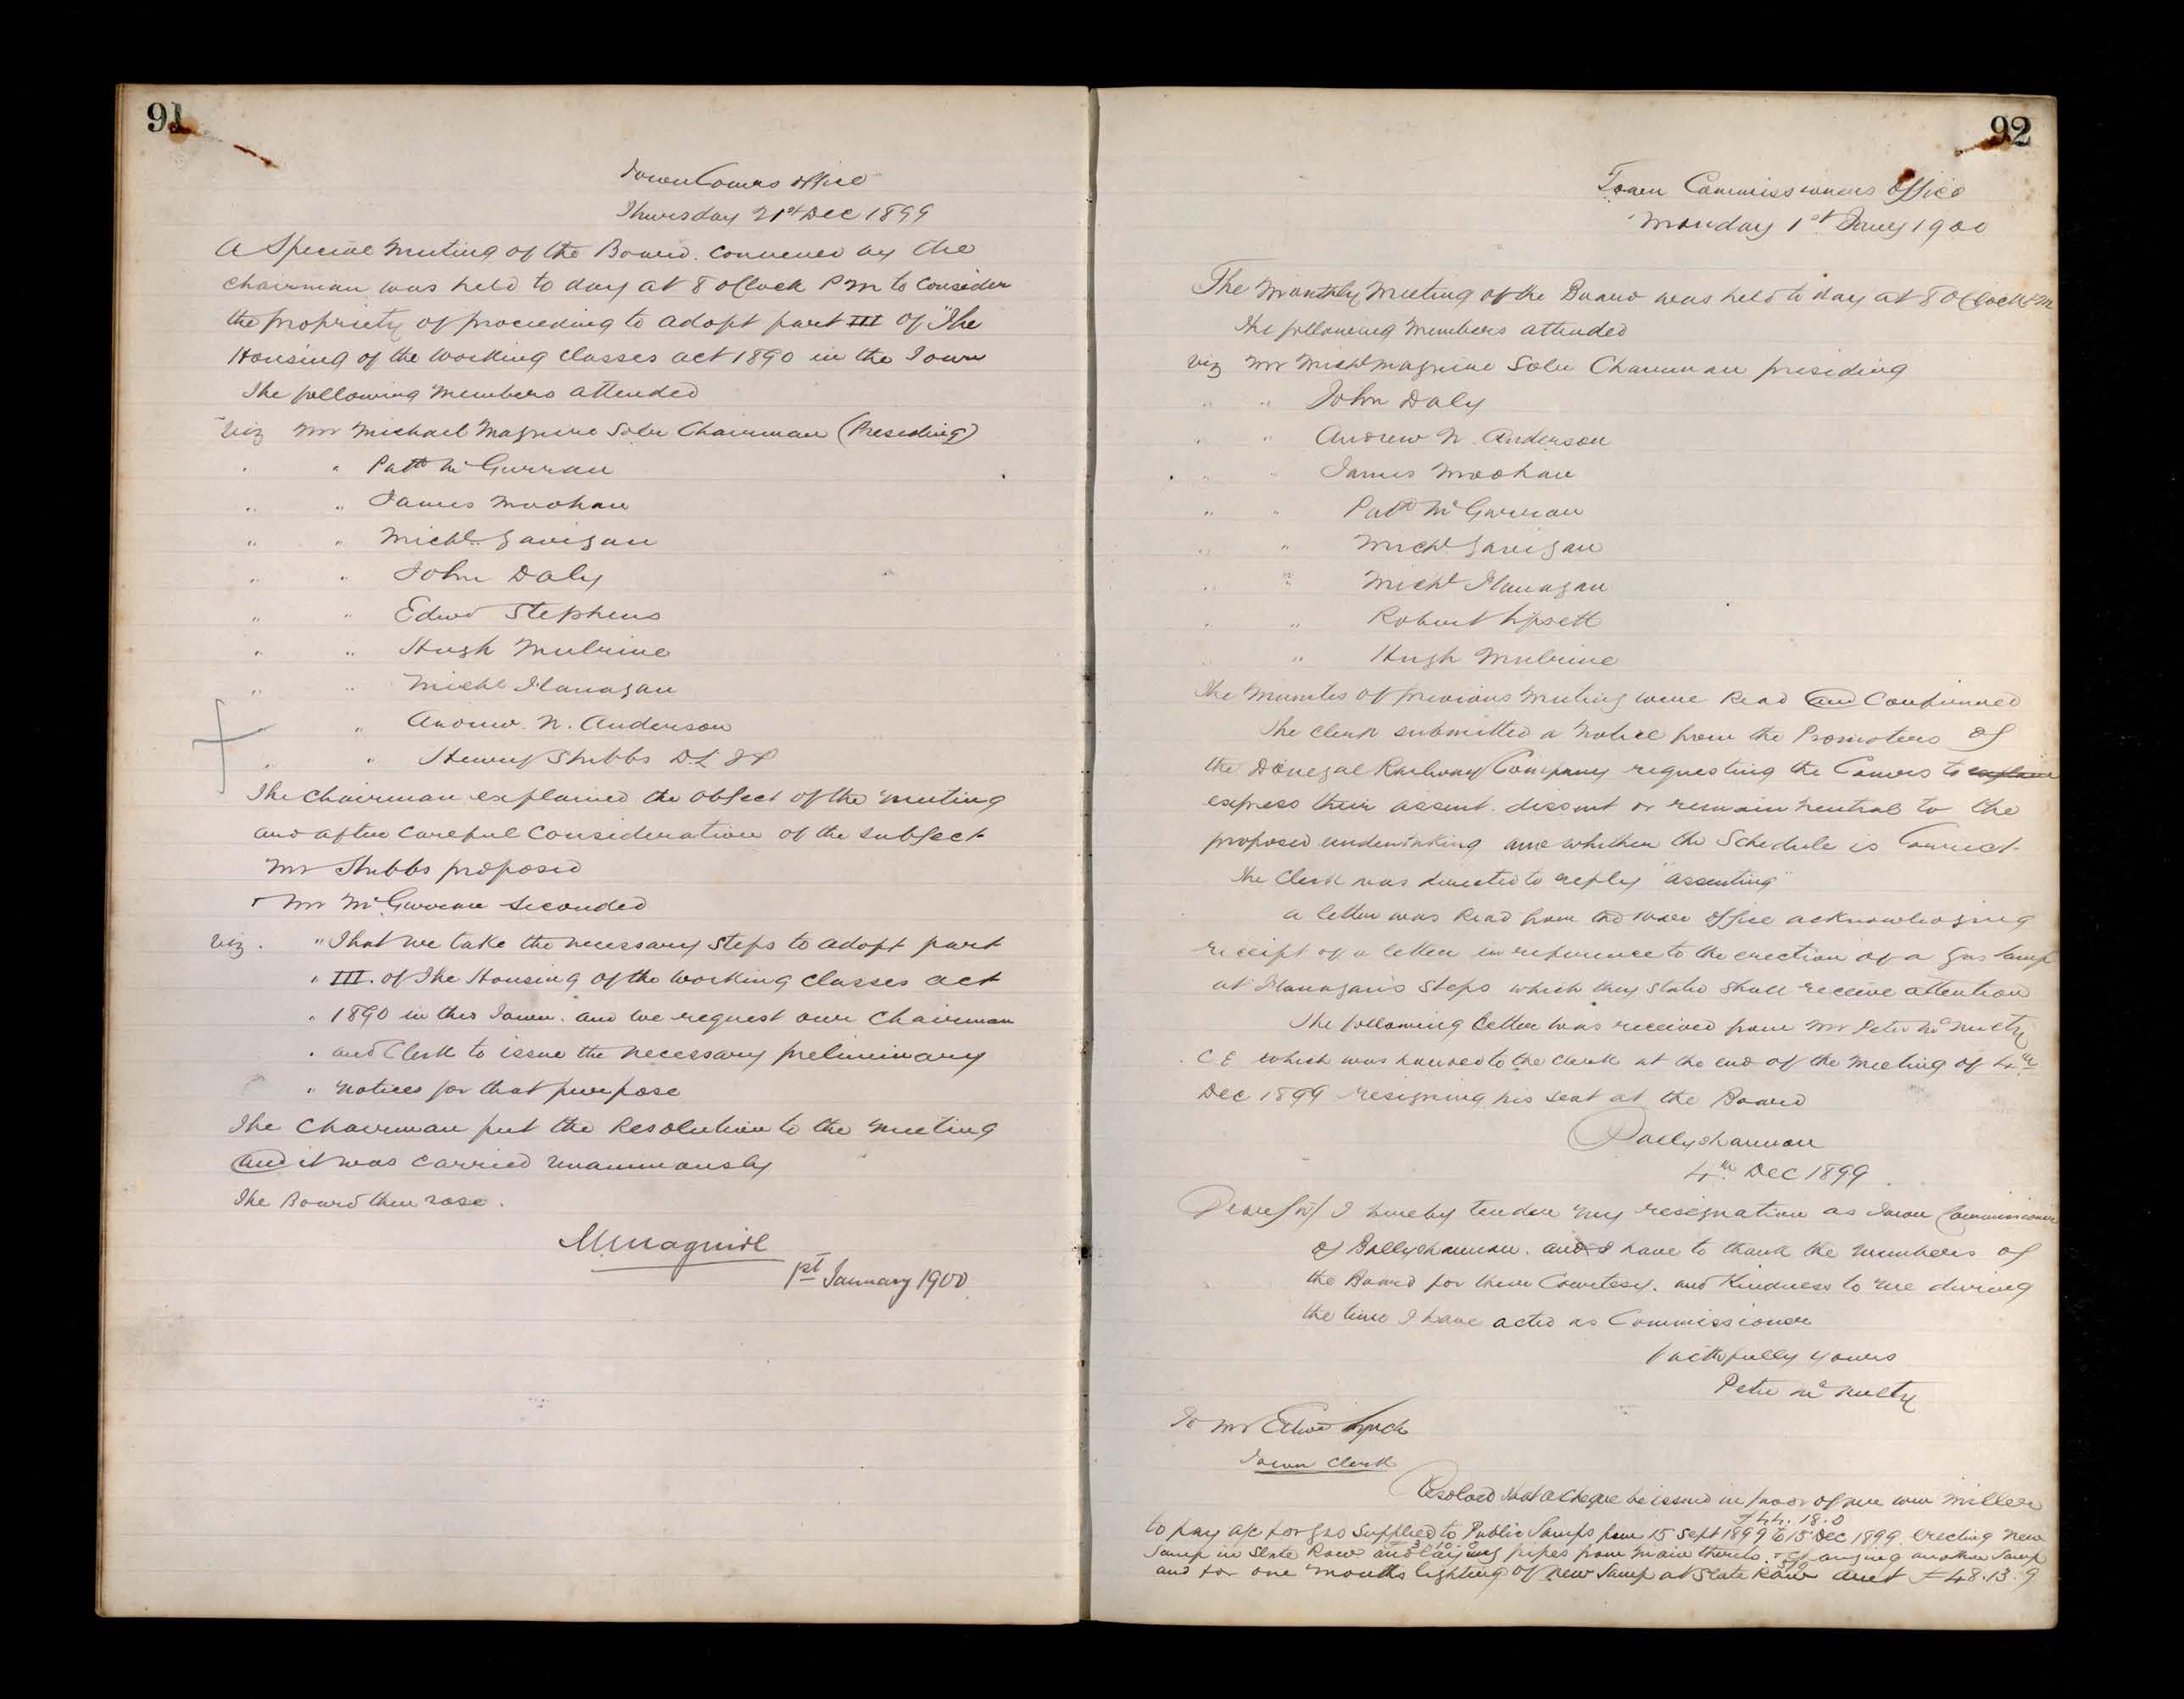 91
Town Comrs Office
Thursday 21st Dec 1899
A Special Meeting of the Board convened by the
Chairman was held to day at 8 o Clock P m to consider
the propriety of proceeding to adopt part III of "The
Housing of the Working Classes act 1890 in the Town
The following Members attended
Viz Mr Michael Maguire Solr Chairman (Presiding)
" " Patk Mc Gurran
" " James Moohan
" " Michl Gavigan
" " John Daly
" " Edwd Stephens
" " Hugh Mulrine
" " Michl Flanagan
" Andrew N. Anderson
" " Henry Stubbs D.L JP
The Chairman explained the object of the meeting
and after careful Consideration of the subject
Mr Stubbs proposed
Mr Mc Gurran seconded
Viz. "That we take the necessary steps to adopt part
" III. of The Housing of the Working Classes act
" 1890 in this Town. and we request our Chairman
" and Clerk to issue the necessary preliminary
" notices for that purpose
The Chairman put the Resolution to the meeting
and it was carried unanimously
The Board then rose.
M. Maguire
1st January 1900
92
Town Commissioners Office
Monday 1st Jany 1900
The Monthly Meeting of the Board was held to day at 8 O Clock P M
The following Members attended
Viz Mr Michl Maguire Solr Chairman presiding
" " John Daly
" " Andrew N. Anderson
" " James Moohan
" " Patk Mc Gurran
" " Michl Gavigan
" " Michl Flanagan
" " Robert Lipsett
" " Hugh Mulrine
The Minutes of previous Meeting were Read and Confirmed
The Clerk submitted a Notice from the Promoters of
the Donegal Railway Company requesting the Comrs to explain
express their assent. dissent or remain neutral to the
proposed undertaking and whether the Schedule is Correct.
The Clerk was directed to reply "assenting"
a letter was Read from the War Office acknowledging
receipt of a letter in reference to the erection of a gas Lamp
at Flanagan's Steps which they stated shall receive attention
The following letter was received from Mr Peter Mc Nulty
C E which was handed to the Clerk at the end of the Meeting of 4th
Dec 1899 resigning his seat at the Board
Ballyshannon
4th Dec 1899
Dear Sir/ I hereby tender my resignation as Town Commissioner
of Ballyshannon. and I have to thank the members of
the Board for their Courtesy. and Kindness to me during
the time I have acted as Commissioner
Faithfully yours
Peter Mc Nulty
To Mr Edwd Lynch
Town Clerk
Resolved that a Cheque be issued in favor of Mr Wm Miller
£44. 18. 0
to pay a/c for gas supplied to Public Lamps from 15 Sept 1899 to 15 Dec 1899. erecting new
Lamp in Slate Row and laying pipes from Main thereto. changing another Lamp
and for one months lighting of New Lamp at Slate Row amt £48. 13. 9